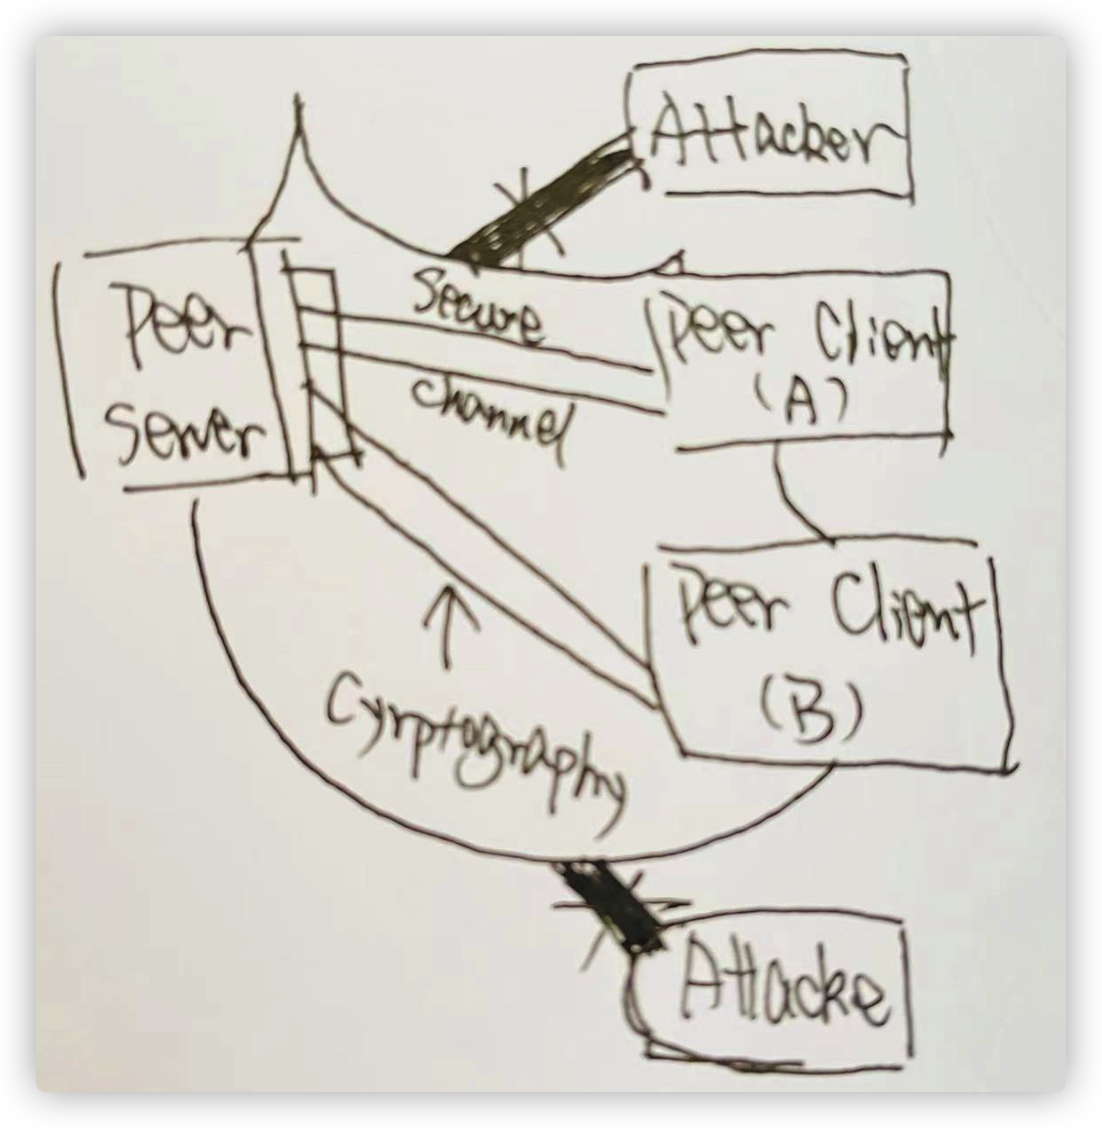 Attacker
Peer
Server
Secure
Channel
Peer Client
(A)
Peer Client
(B)
Cyrptography
Attacke